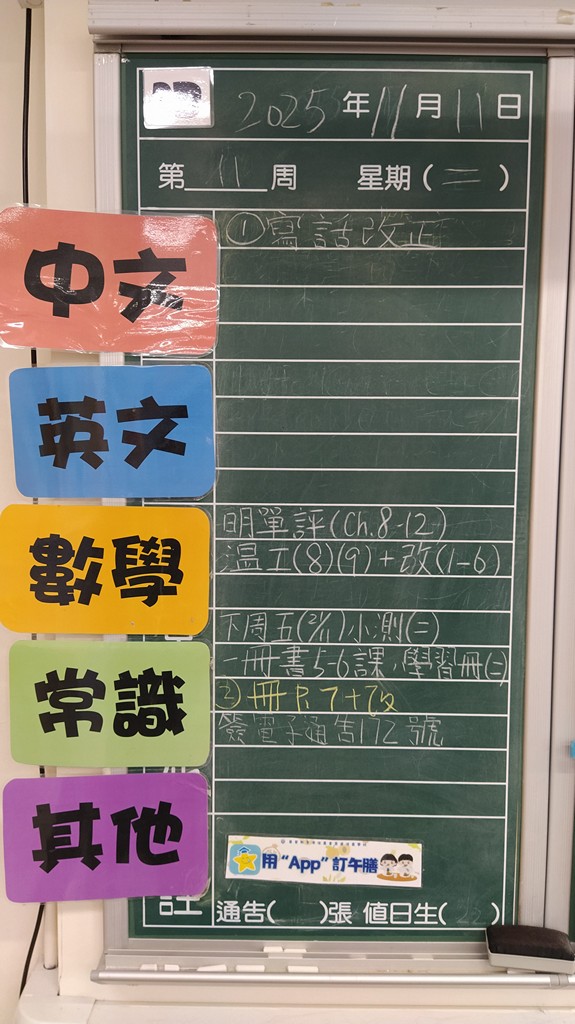 2025年11月11日
第11周 星期(二)
中文
①寫話改正
英文
數學
明單評(Ch.8-12)
溫工(8)(9)+改(1-6)
常識
下周五(21/11)小測(二)
一冊書5-6課,學習冊(二)
②冊P.7+改
其他
簽電子通告172號
用“App”訂午膳
註
通告( )張 值日生( )